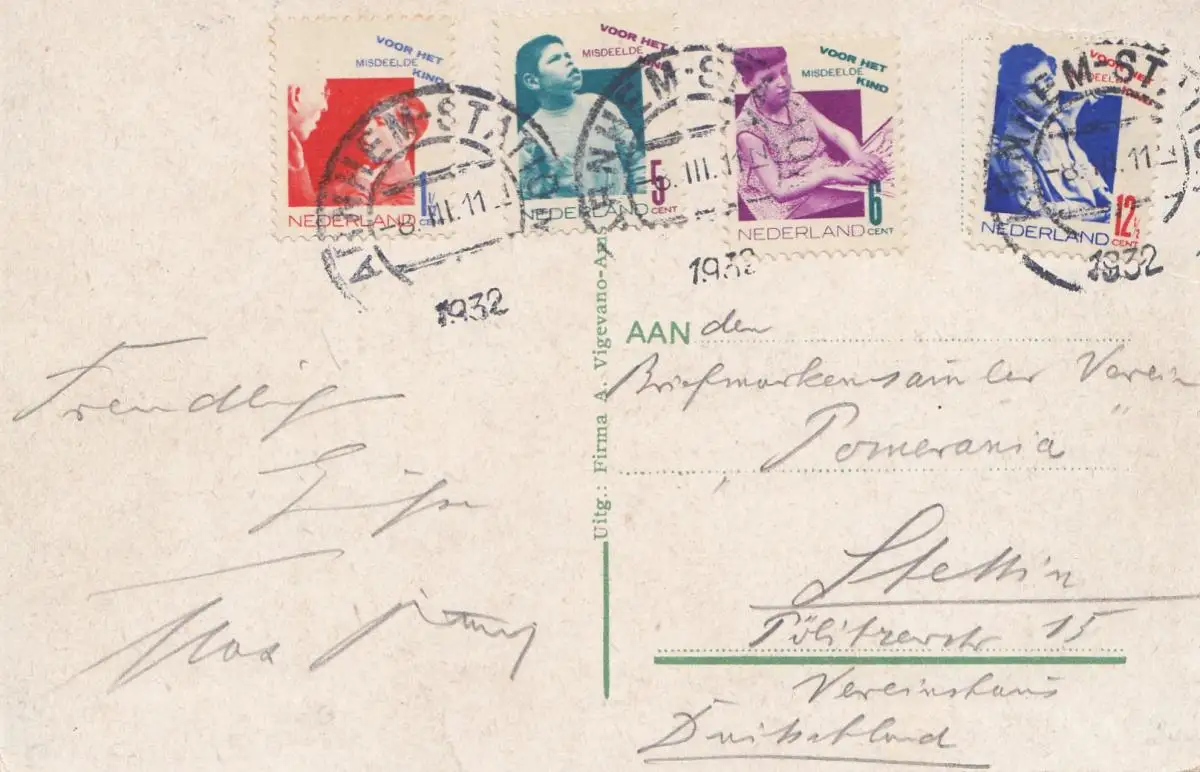 VOOR HET
MISDEELDE
KIND
NEDERLAND
1½
CENT
VOOR HET
MISDEELDE
KIND
NEDERLAND
5
CENT
VOOR HET
MISDEELDE
KIND
NEDERLAND
6
CENT
VOOR HET
MISDEELDE
KIND
NEDERLAND
12½
CENT
ARNHEM-STA
III.11
1932
ARNHEM-STA
8.III.11
1932
ARNHEM-ST
1932
Uitg.: Firma A. Vigevano-A
Freundlig
Grüße
Max
AAN den
Briefmarkensammler Verein
„Pomerania“
Stettin
Pölitzerstr 15
Vereinshaus
Duitschland